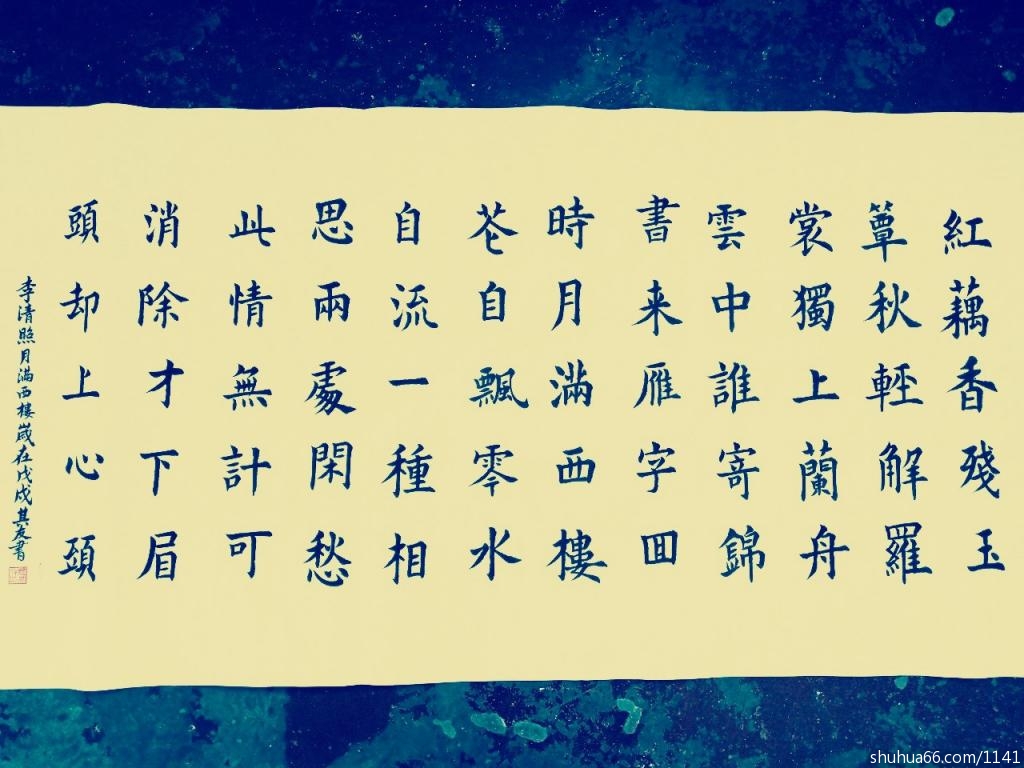 紅藕香殘玉
簟秋輕解羅
裳獨上蘭舟
雲中誰寄錦
書来雁字回
時月滿西樓
花自飄零水
自流一種相
思兩處閑愁
此情無計可
消除才下眉
頭却上心頭
李清照月滿西樓歲在戊戌其友書
shuhua66.com/1141